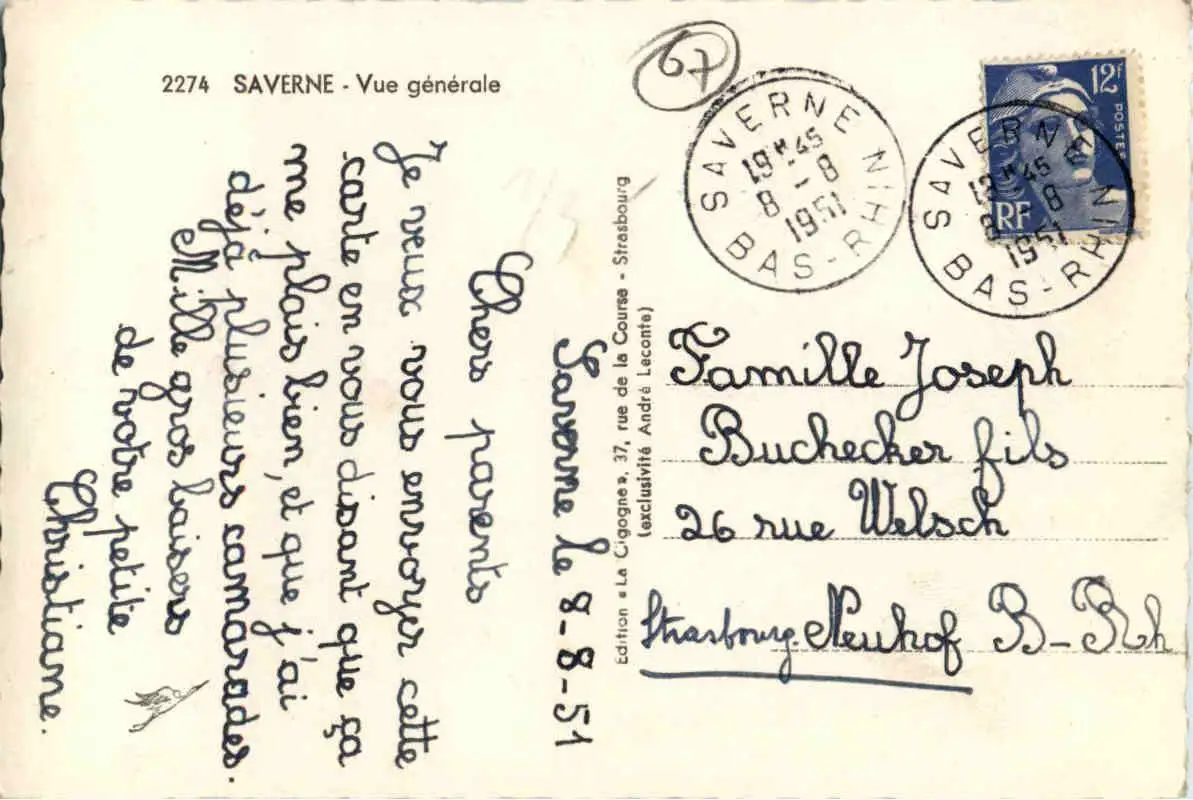 2274 SAVERNE - Vue générale
Saverne le 8-8-51
Chers parents
Je veux vous envoyer cette
carte en vous disant que ça
me plais bien, et que j'ai
déjà plusieurs camarades.
Mille gros baisers
de votre petite
Christiane.
Edition « La Cigogne », 37, rue de la Course - Strasbourg
(exclusivité André Leconte)
67
SAVERNE
19H45
8 - 8
1951
BAS-RHIN
12f
POSTES
RF
SAVERNE
19H45
8 - 8
1951
BAS-RHIN
Famille Joseph
Buchecker fils
26 rue Welsch
Strasbourg-Neuhof B-Rh